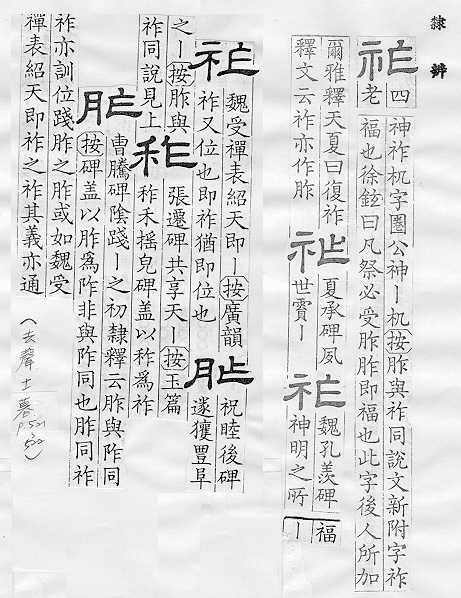 隸辨
祚
四
老
神祚机字圈公神丨机按胙與祚同說文新附字祚
福也徐鉉曰凡祭必受胙胙即福也此字後人所加
爾雅釋天夏曰復祚
釋文云祚亦作胙
祚
夏承碑夙
世賈丨
祚
魏孔羨碑
神明之所
福
丨
祚
魏受禪表紹天即丨按廣韻
祚又位也即祚猶即位也
胙
祝睦後碑
遂獲豐阜
之丨按胙與
祚同說見上
秨
張遷碑共享天丨按玉篇
秨禾搖皃碑蓋以秨爲祚
胙
曹騰碑陰踐丨之初隸釋云胙與阼同
按碑蓋以胙爲阼非與阼同也胙同祚
祚亦訓位踐胙之胙或如魏受
禪表紹天即祚之祚其義亦通
(去聲十一暮